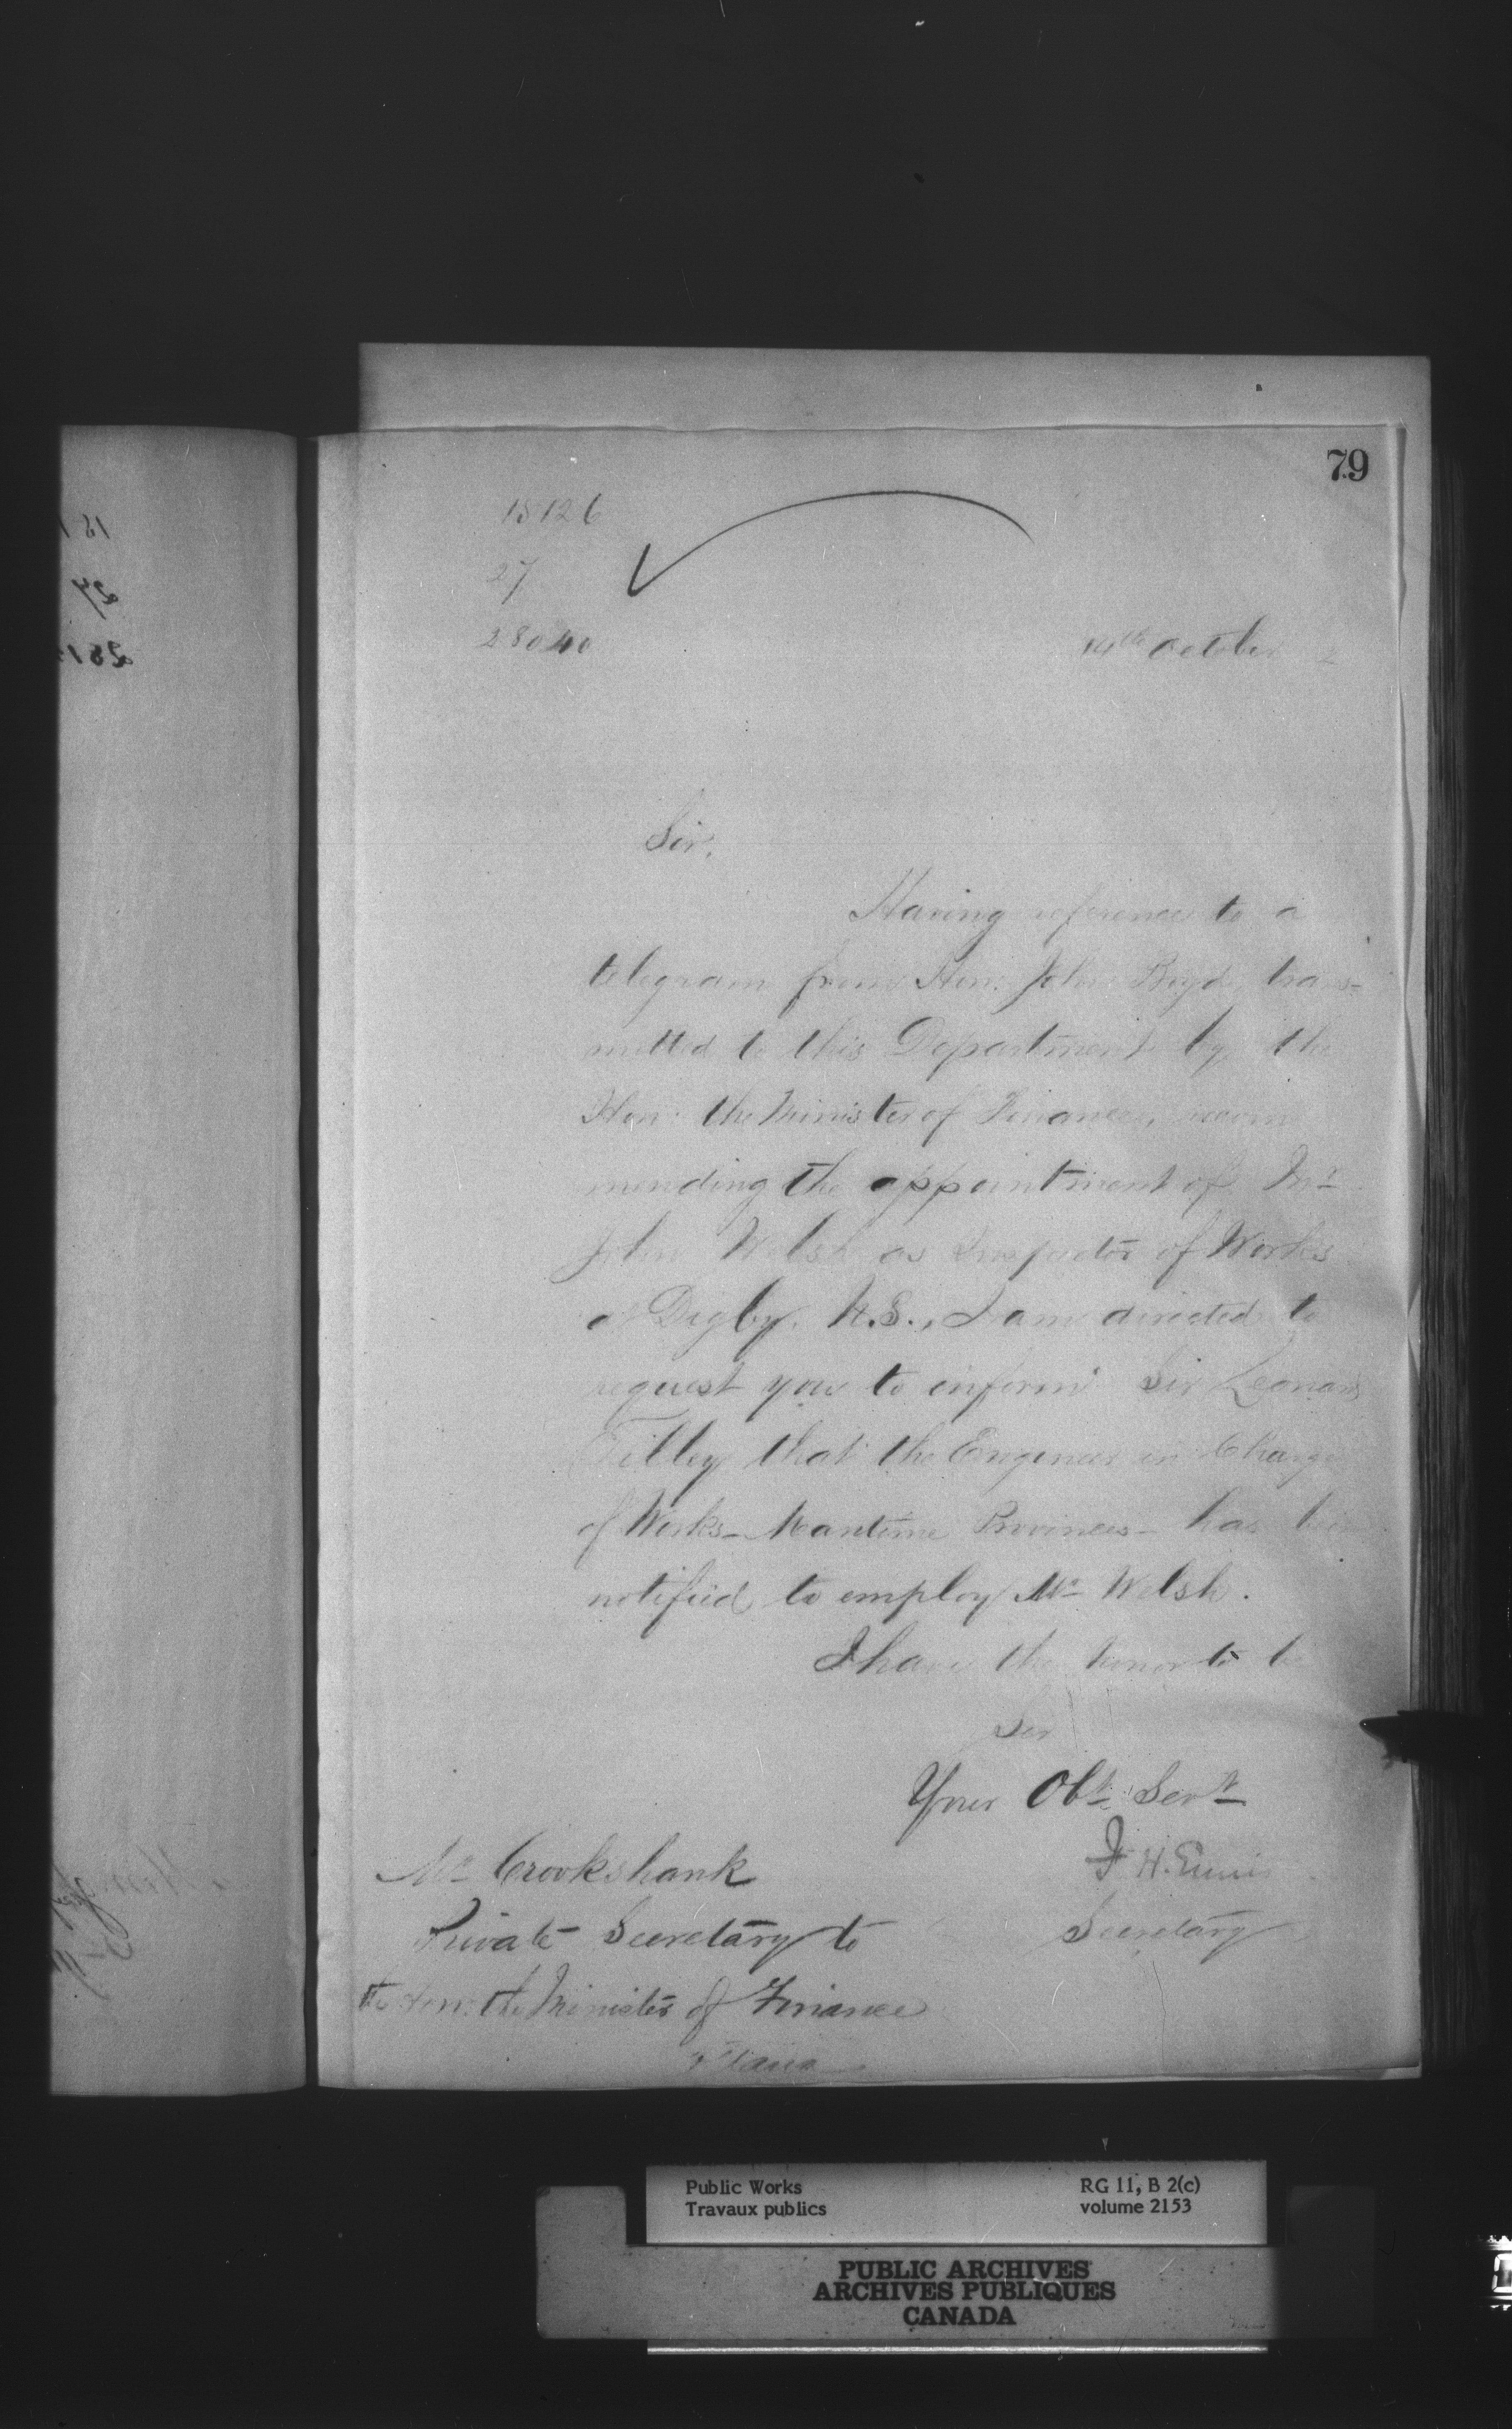 79
18126
27
28040
14th October 2
Sir,
Having reference to a
telegram from Hon. John Boyd, trans=
mitted to this Department by the
Hon. the Minister of Finance, recom
mending the appointment of Mr
John Welsh as Inspector of Works
at Digby. N.S., I am directed to
request you to inform Sir Leonard
Tilley that the Engineer in Charge
of Works – Maritime Provinces – has been
notified to employ Mr Welsh.
I have the honor to be
Sir
Your Obt Servt
F. H. Ennis
Secretary
Mr Crookshank
Private Secretary to
the Hon. the Minister of Finance
Ottawa
Public Works
Travaux publics
RG 11, B 2(c)
volume 2153
PUBLIC ARCHIVES
ARCHIVES PUBLIQUES
CANADA